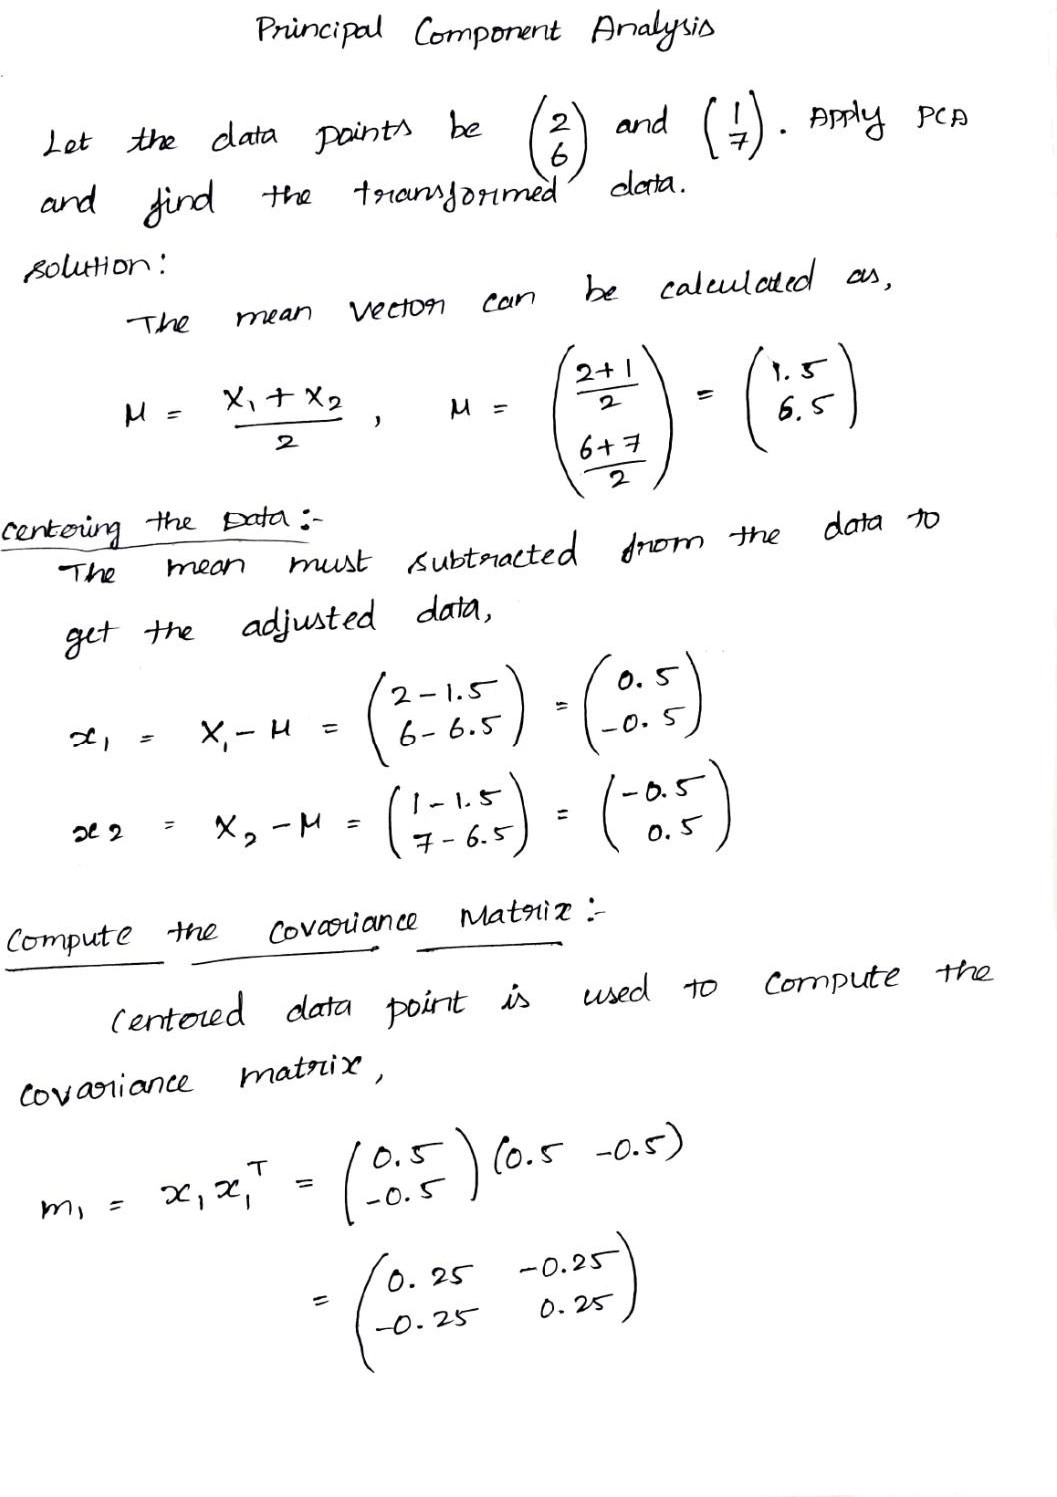 Principal Component Analysis
Let the data points be (2 6) and (1 7). Apply PCA
and find the transformed data.
solution:
The mean vector can be calculated as,
μ = X₁ + X₂ / 2 , μ = (2+1 / 2 6+7 / 2) = (1.5 6.5)
centering the Data :-
The mean must subtracted from the data to
get the adjusted data,
x₁ = X₁ - μ = (2 - 1.5 6 - 6.5) = (0.5 -0.5)
x₂ = X₂ - μ = (1 - 1.5 7 - 6.5) = (-0.5 0.5)
Compute the Covariance Matrix :-
Centered data point is used to compute the
covariance matrix,
m₁ = x₁ x₁ᵀ = (0.5 -0.5) (0.5 -0.5)
= (0.25 -0.25 -0.25 0.25)